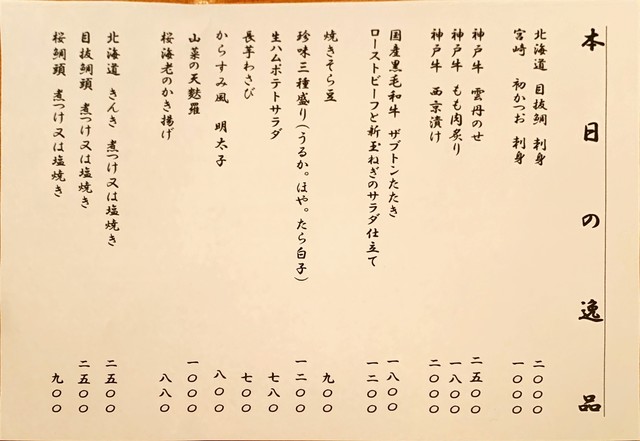 本日の逸品
北海道 目抜鯛 刺身 二〇〇〇
宮崎 初かつお 刺身 一〇〇〇
神戸牛 雲丹のせ 二五〇〇
神戸牛 もも肉炙り 一八〇〇
神戸牛 西京漬け 二〇〇〇
国産黒毛和牛 ザブトンたたき 一八〇〇
ローストビーフと新玉ねぎのサラダ仕立て 一二〇〇
焼きそら豆 九〇〇
珍味三種盛り(うるか。ほや。たら白子) 一二〇〇
生ハムポテトサラダ 七八〇
長芋わさび 六〇〇
からすみ風 明太子 八〇〇
山菜の天麩羅 一〇〇〇
桜海老のかき揚げ 八八〇
北海道 きんき 煮つけ又は塩焼き 二五〇〇
目抜鯛頭 煮つけ又は塩焼き 二五〇〇
桜鯛頭 煮つけ又は塩焼き 九〇〇